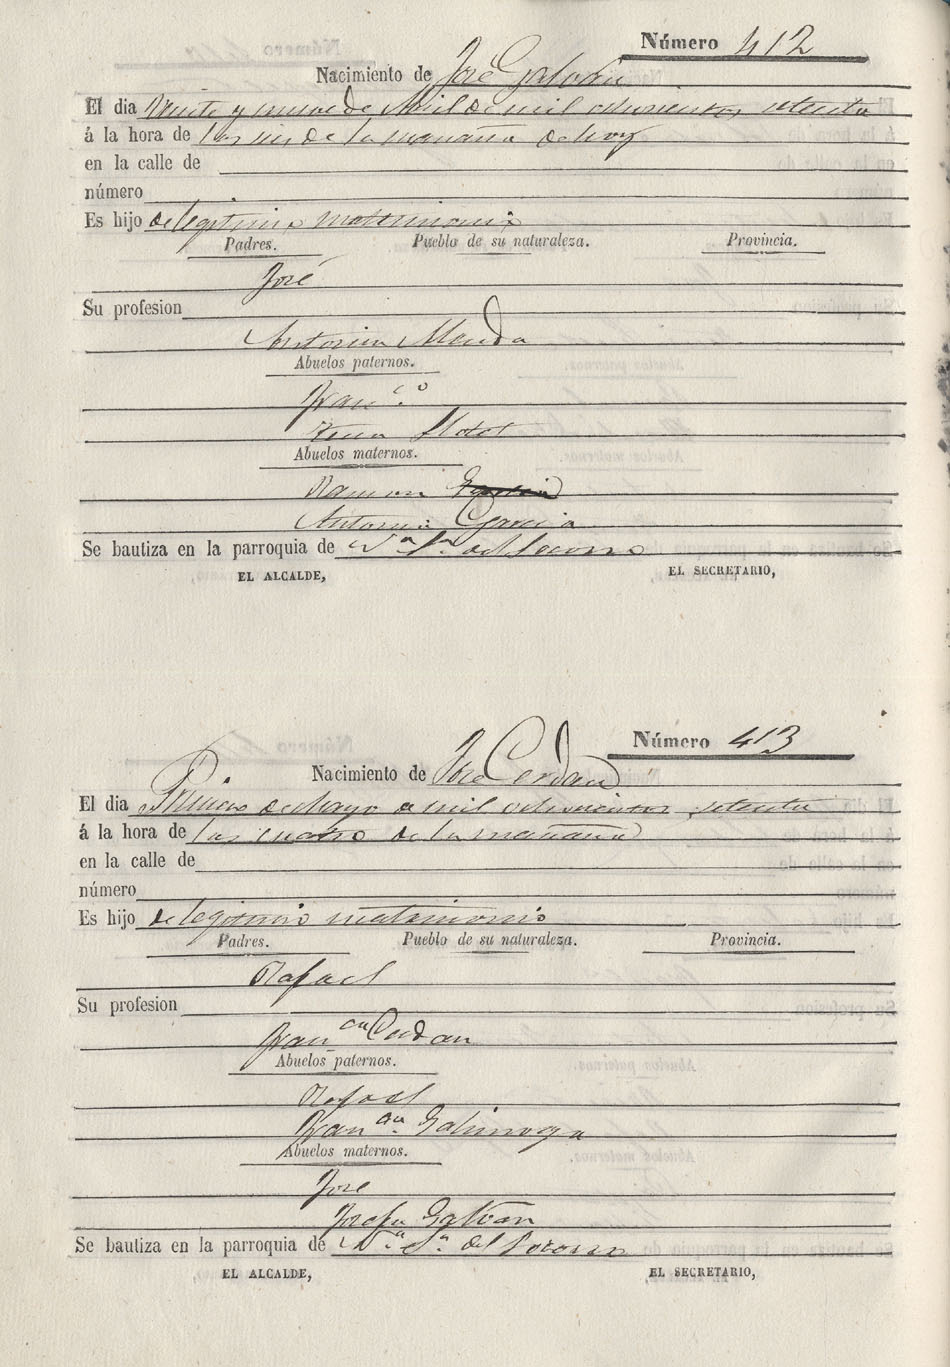 Número 412
Nacimiento de José Galvañ
El dia Veinte y nueve de Abril de mil ochocientos setenta
á la hora de las seis de la mañana de hoy
en la calle de
número
Es hijo de legitimo matrimonio
Padres. Pueblo de su naturaleza. Provincia.
José
Su profesion
Antonia
Abuelos paternos.
Fran.co
Abuelos maternos.
Ramon
Antonia Garcia
Se bautiza en la parroquia de N.a S.a del Socorro
EL ALCALDE, EL SECRETARIO,
Número 413
Nacimiento de José Cerdan
El dia Primero de Mayo de mil ochocientos setenta
á la hora de las cuatro de la mañana
en la calle de
número
Es hijo de legitimo matrimonio
Padres. Pueblo de su naturaleza. Provincia.
Rafael
Su profesion
Fran.ca Cerdan
Abuelos paternos.
Rafael
Fran.ca
Abuelos maternos.
José
Josefa Galvañ
Se bautiza en la parroquia de N.a S.a del Socorro
EL ALCALDE, EL SECRETARIO,